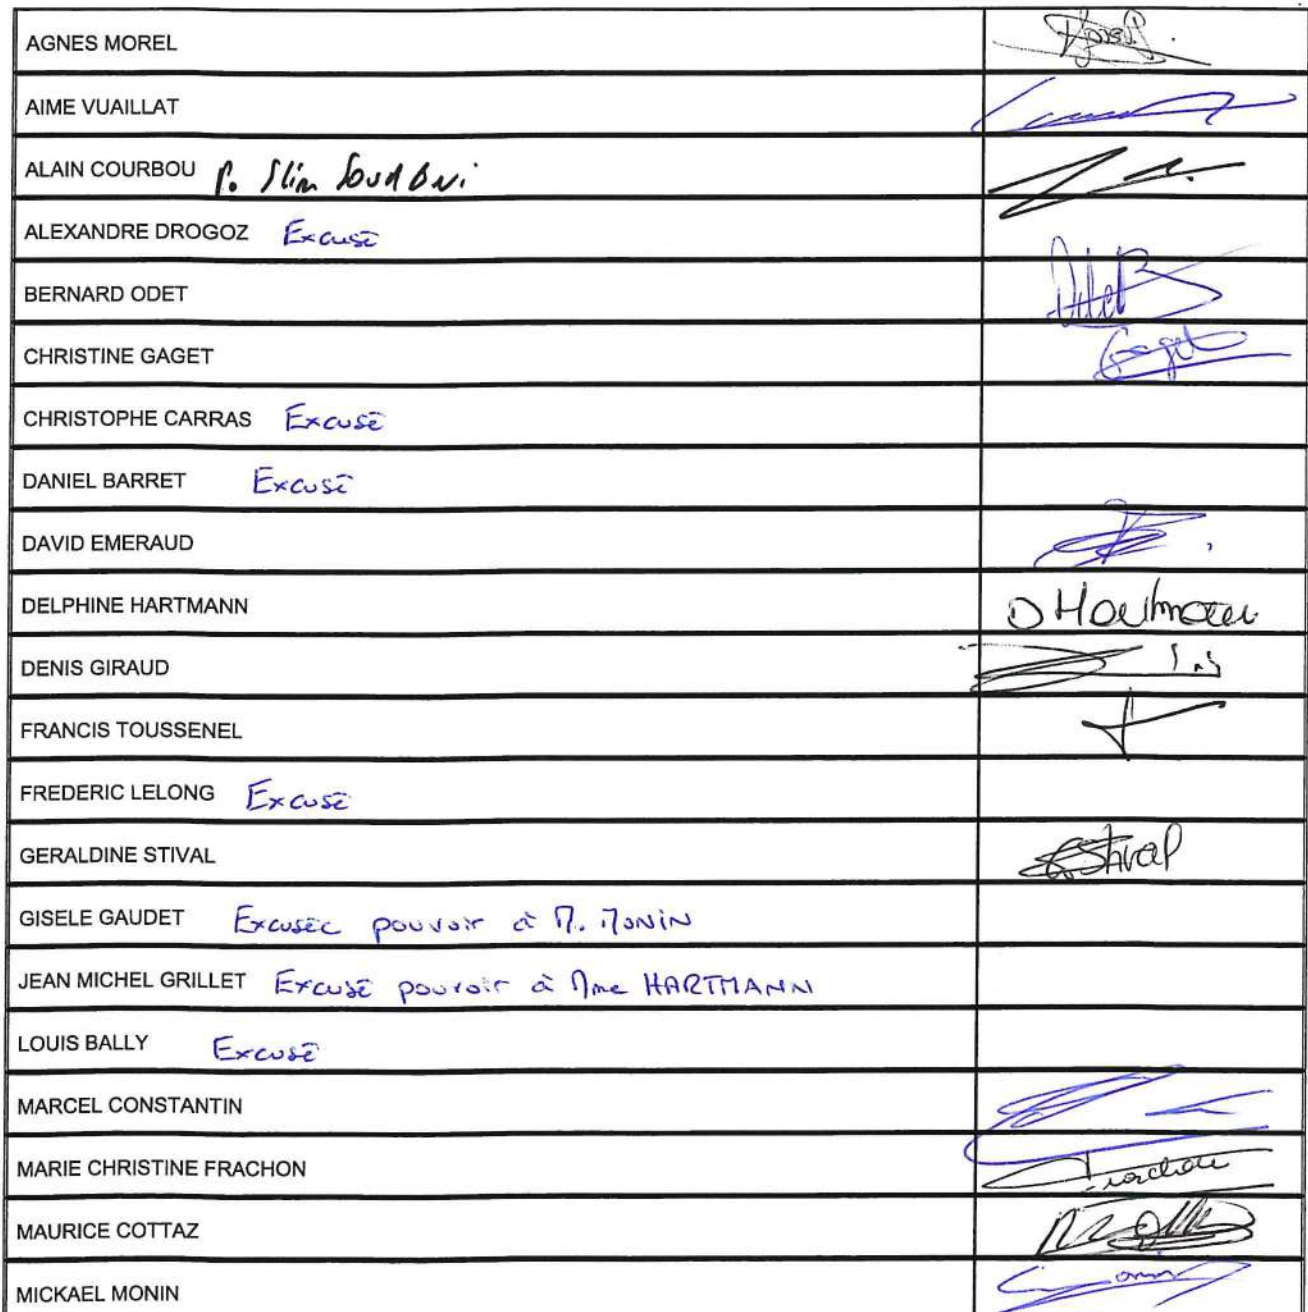 AGNES MOREL
AIME VUAILLAT
ALAIN COURBOU P. Slim
ALEXANDRE DROGOZ Excusé
BERNARD ODET
CHRISTINE GAGET Gaget
CHRISTOPHE CARRAS Excusé
DANIEL BARRET Excusé
DAVID EMERAUD
DELPHINE HARTMANN D Hartmann
DENIS GIRAUD
FRANCIS TOUSSENEL
FREDERIC LELONG Excusé
GERALDINE STIVAL GStival
GISELE GAUDET Excusée pouvoir à M. MONIN
JEAN MICHEL GRILLET Excusé pouvoir à Mme HARTMANN
LOUIS BALLY Excusé
MARCEL CONSTANTIN
MARIE CHRISTINE FRACHON Frachon
MAURICE COTTAZ
MICKAEL MONIN